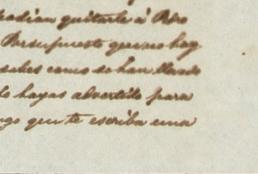 podian quitarle á Pedro
Persupuesto que no hay
sabes como se han llevado
lo hayas advertido para
ngo que te escriba una